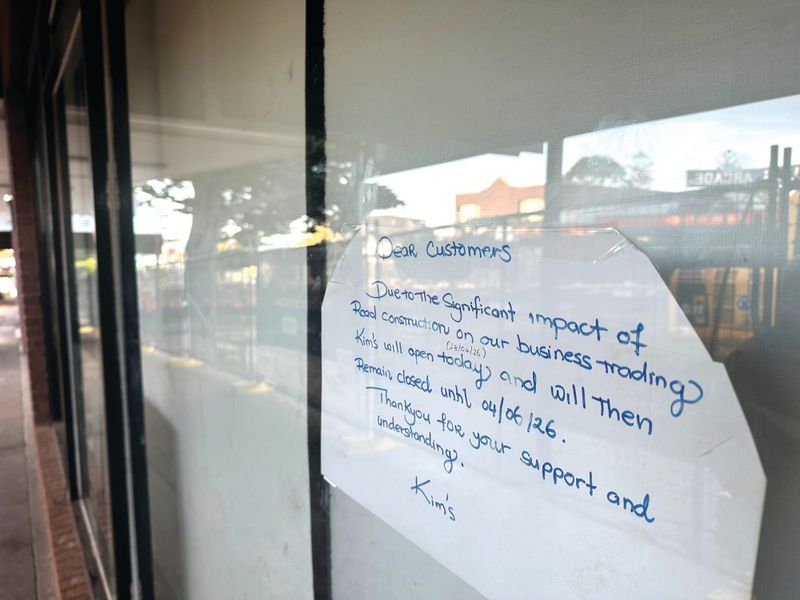 Dear Customers
Due to The Significant impact of
Road construction on our business trading
Kim's will open today, and will Then
(28/04/26)
Remain closed until 04/06/26.
Thankyou for your support and
understanding.
Kim's